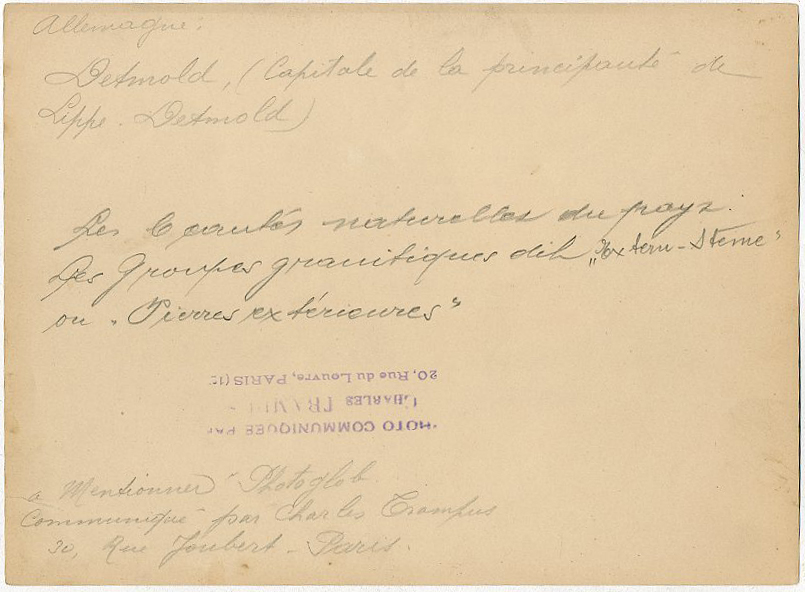 Allemagne:
Detmold, (Capitale de la principauté de
Lippe-Detmold)
Les beautés naturelles du pays.
Des Groupes granitiques dits „Extern-Steine“
ou „Pierres extérieures“
PHOTO COMMUNIQUÉE PAR
CHARLES
20, Rue du Louvre, PARIS
à Mentionner Photoglob
Communiqué par Charles Trampus
30, Rue Joubert - Paris.